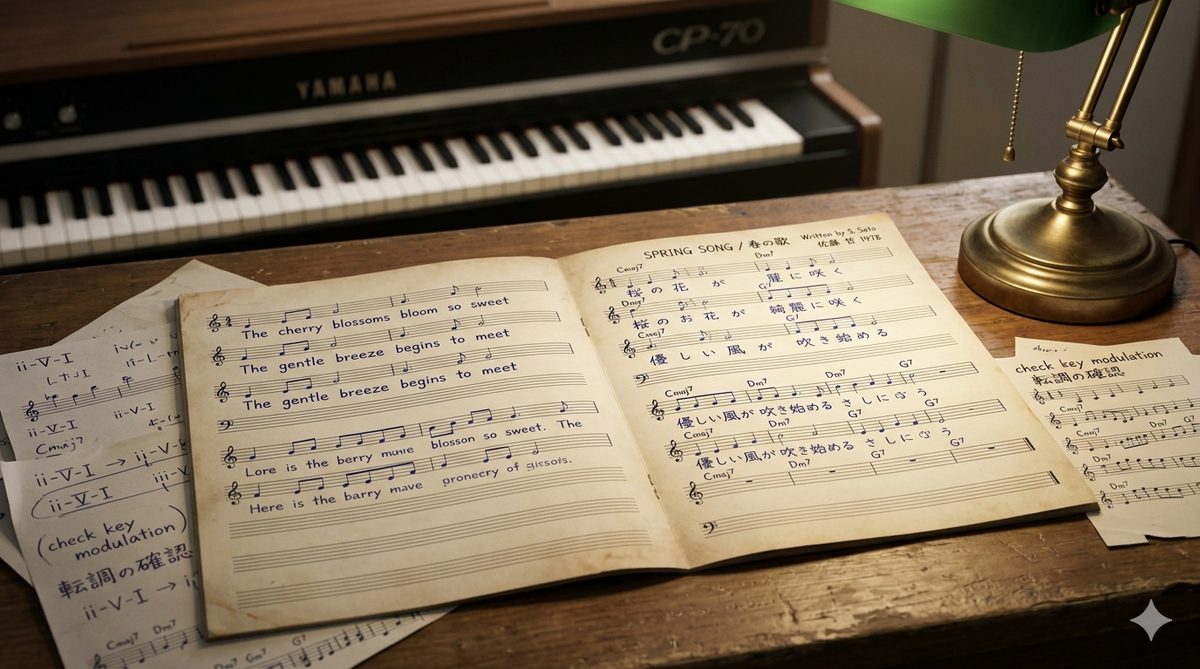 CP-70
YAMAHA
The cherry blossoms bloom so sweet
The gentle breeze begins to meet
The gentle breeze begins to meet
Lore is the berry mune blosson so sweet. The
Here is the barry mave pronecry of gissois.
SPRING SONG / 春の歌
Written by S. Sato
佐藤 哲 1978
Cmaj7 Dm7
桜の花が 麗に咲く
G7
桜のお花が 綺麗に咲く
G7
優しい風が 吹き始める
Cmaj7 Dm7 Dm7 G7
優しい風が吹き始める
Cmaj7 Dm7 G7 G7
優しい風が吹き始める
Cmaj7 Dm7 G7 G7
ii-V-I
ii-V-I
ii-V-I
Cmaj7
ii-V-I →
ii-V-I
(check key
modulation)
転調の確認
ii-V-I →
Cmaj7 Dm7
Gm7 G7
check key modulation
転調の確認
Cmaj7
Cmaj7 Dm7
Dm7
Dm7